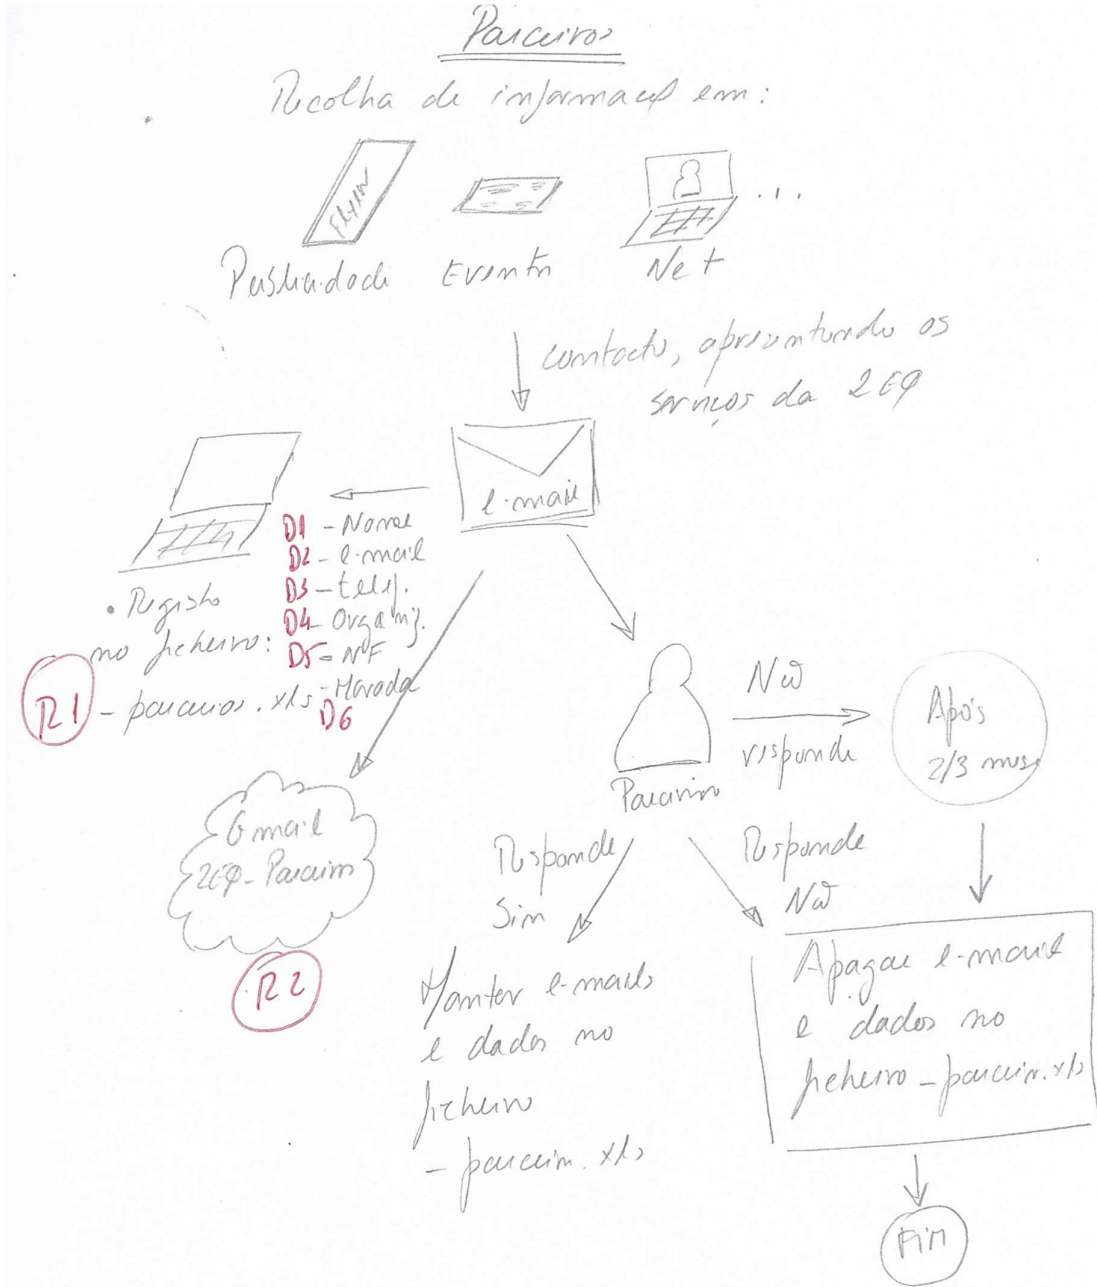 Parceiros
Recolha de informação em:
Flyer
...
Publicidade
Eventos
Net
contacto, apresentando os
serviços da 2EQ
e-mail
D1 - Nome
D2 - e-mail
D3 - telef.
D4 - Organiz.
D5 - NIF
- Morada
D6
• Registo
no ficheiro:
R1 - parceiros.xls
Gmail
2EQ-Parceiros
R2
Parceiro
Não
responde
Após
2/3 meses
Responde
Sim
Responde
Não
Manter e-mails
e dados no
ficheiro
- parceiros.xls
Apagar e-mails
e dados no
ficheiro - parceiros.xls
FIM